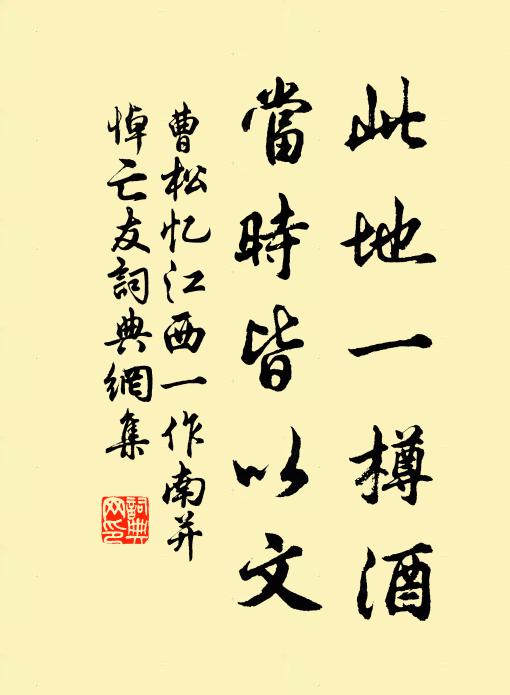 此地一樽酒
當時皆以文
曹松忆江西一作南并
悼亡友詞典網集
詞典網印